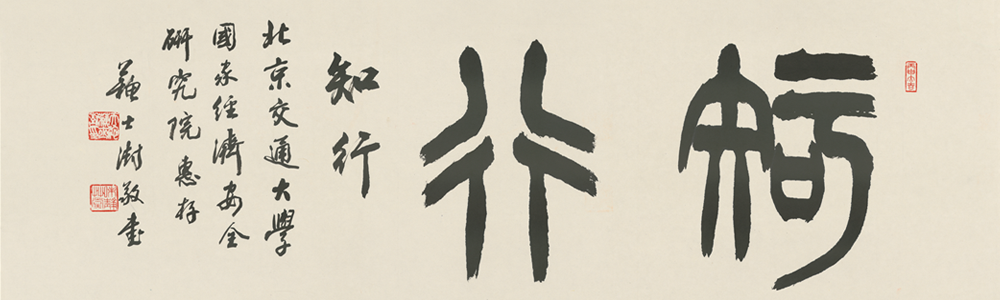 知行
知行
北京交通大學
國家經濟安全
研究院惠存
蘇士澍敬書